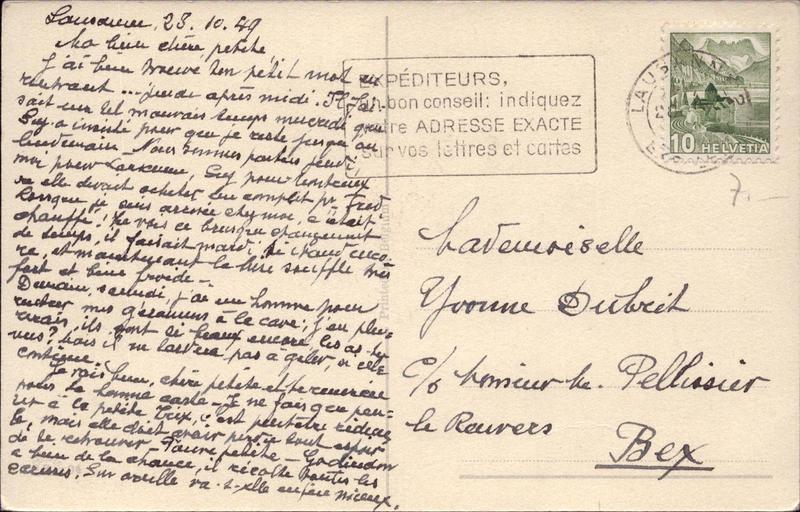 Lausanne, 23. 10. 49
Ma bien chère petite,
J'ai bien trouvé ton petit mot en
rentrant ... jeudi après midi. Il fai-
sait un tel mauvais temps mercredi que
Guy a insisté pour que je reste jusqu'au
lendemain. Nous sommes parties jeudi,
moi pour Lausanne, Guy pour Montreux
où elle devait acheter un complet pr. Fred
Lorsque je suis arrivée chez moi, c'était
chauffé! Tu vois ce brusque changement
de temps, il faisait mardi si chaud enco-
re, et maintenant la bise souffle très
fort et bien froide -.
Demain, samedi, j'ai un homme pour
rentrer mes géraniums à la cave; j'en pleu-
rerais, ils sont si beaux encore, les as-tu
vus? Mais il ne tardera pas à geler, si elle
continue.
Je vais bien, chère petite et te remercie
pour ta bonne carte - Je ne fais que pen-
ser à la petite Trix, c'est peut-être ridicu-
le, mais elle doit avoir perdu tout espoir
de te retrouver. Pauvre petite -
a bien de la chance, il récolte toutes les
caresses. Son oreille va-t-elle enfin mieux.
EXPÉDITEURS,
un bon conseil: indiquez
votre ADRESSE EXACTE
sur vos lettres et cartes
LAUSANNE
10 HELVETIA
7.-
Mademoiselle
Yvonne Dubrit
c/o Monsieur Me. Pellissier
le Rouvers
Bex
Printed